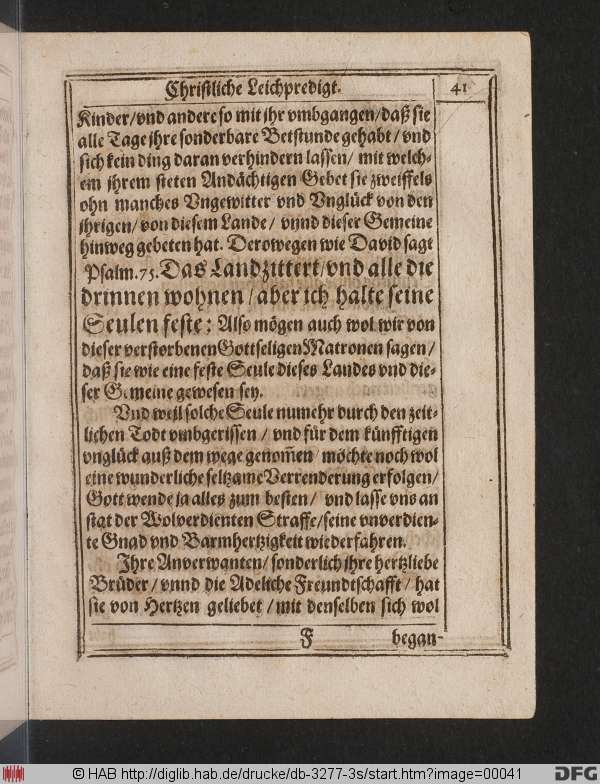 Christliche Leichpredigt.
41
Kinder/vnd andere so mit jhr vmbgangen/daß sie
alle Tage jhre sonderbare Betstunde gehabt/vnd
sich kein ding daran verhindern lassen/ mit welch-
em jhrem steten Andächtigen Gebet sie zweiffels
ohn manches Vngewitter vnd Vnglück von den
jhrigen/von diesem Lande/ vnnd dieser Gemeine
hinweg gebeten hat. Derowegen wie David sagt
Psalm.75. Das Landzittert/vnd alle die
drinnen wohnen/aber ich halte seine
Seulen feste: Also mögen auch wol wir von
dieser verstorbenen Gottseligen Matronen sagen/
daß sie wie eine feste Seule dieses Landes vnd die-
ser Gemeine gewesen sey.
Vnd weil solche Seule numehr durch den zeit-
lichen Todt vmbgerissen/ vnd für dem künfftigen
vnglück auß dem wege genom̃en/ möchte noch wol
eine wunderliche seltzame Verrenderung erfolgen/
Gott wende ja alles zum besten/ vnd lasse vns an
stat der Wolverdienten Straffe/seine vnverdien-
te Gnad vnd Barmhertzigkeit wiederfahren.
Ihre Anverwanten/sonderlich ihre hertzliebe
Brüder/vnnd die Adeliche Freundtschafft/hat
sie von Hertzen geliebet/mit denselben sich wol
F
began-
© HAB http://diglib.hab.de/drucke/db-3277-3s/start.htm?image=00041
DFG